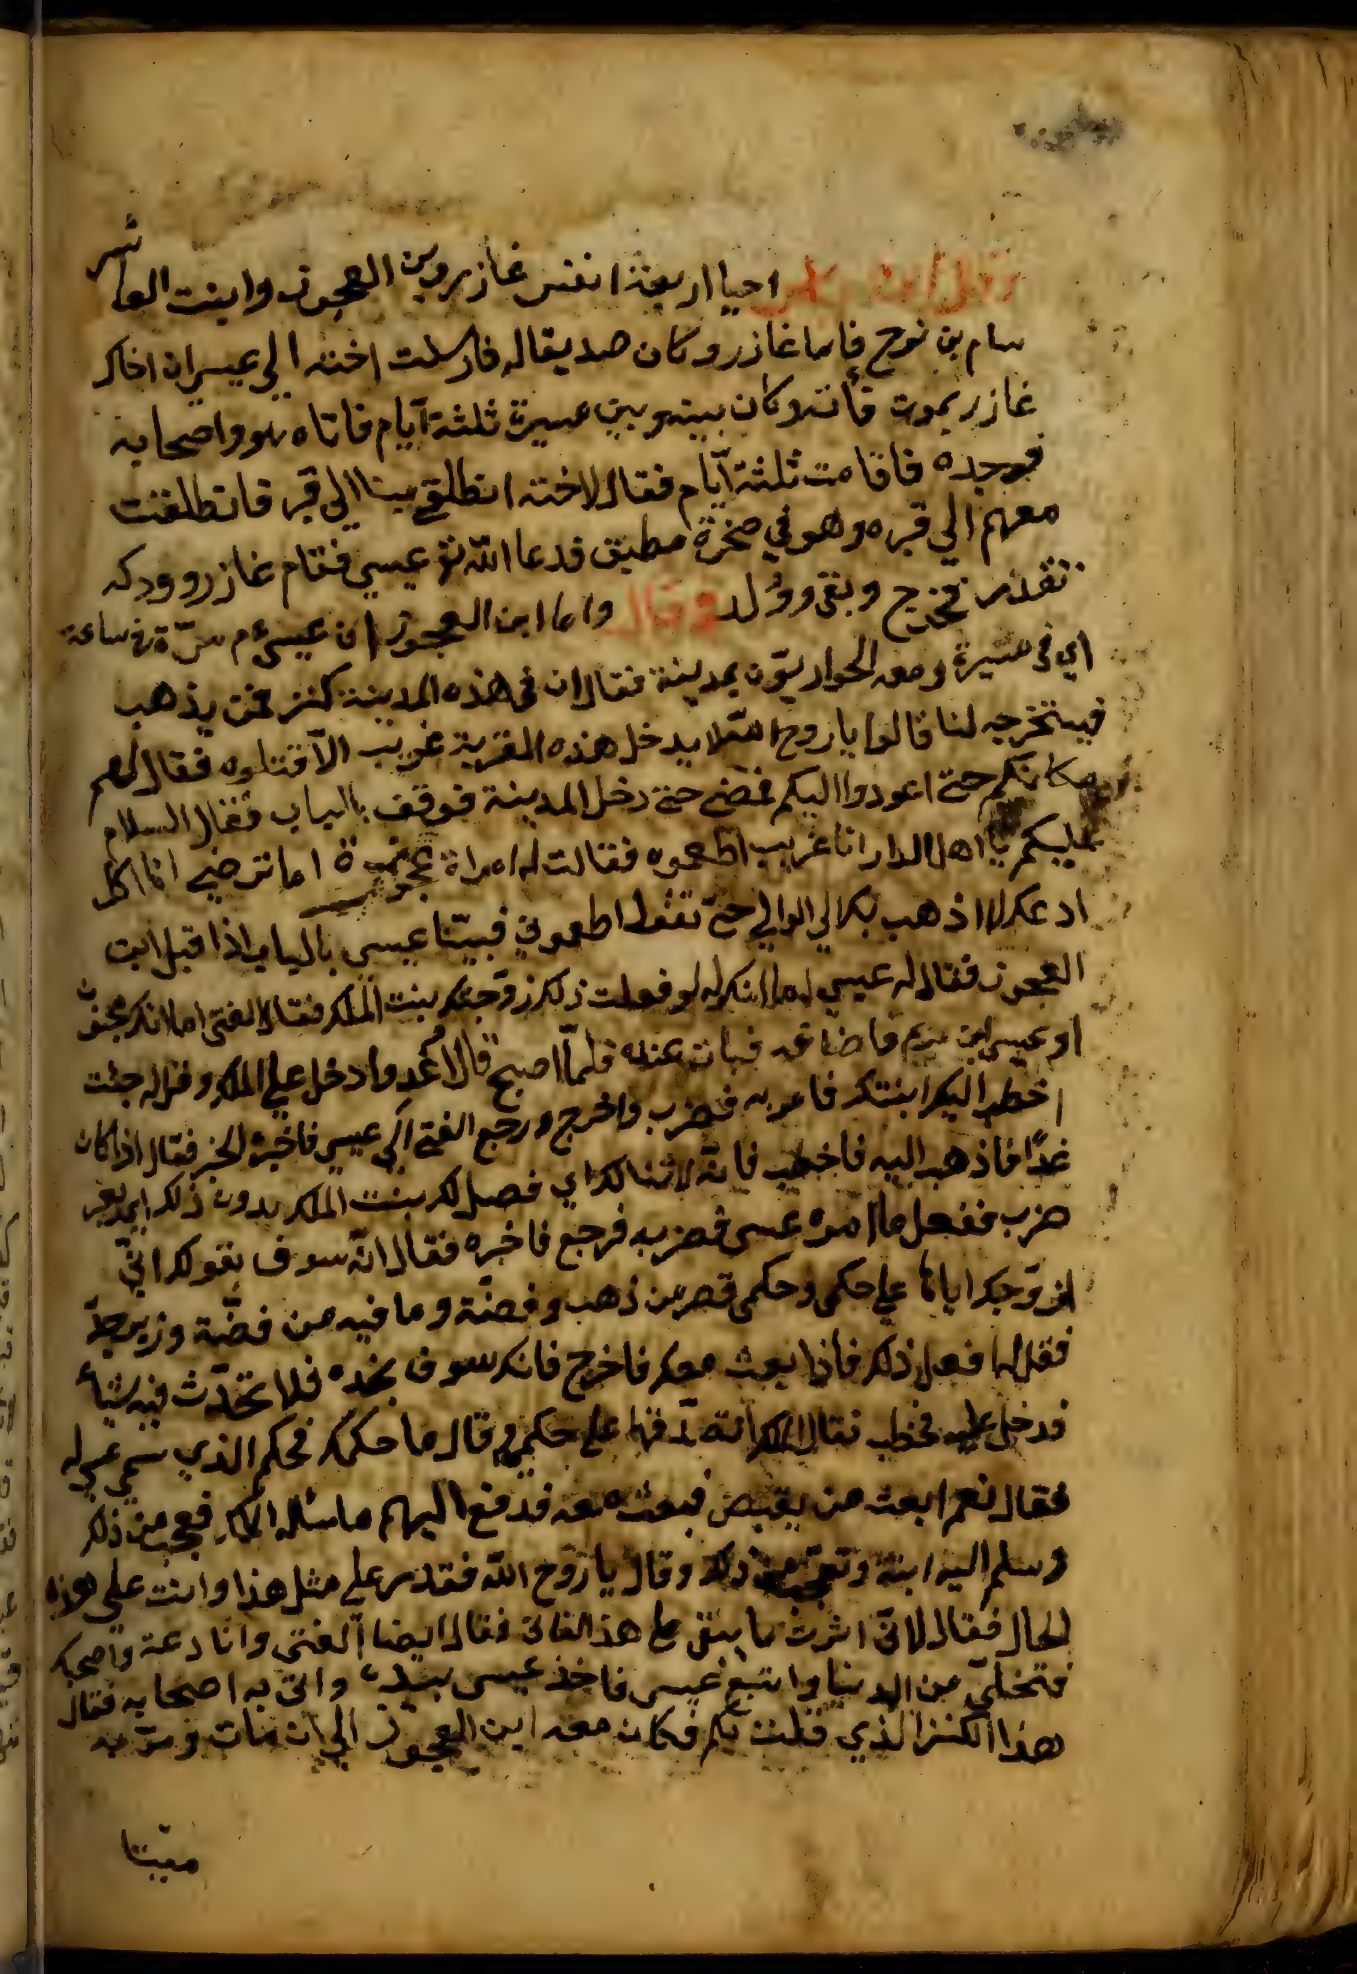 احيا اربعة انفس عازر وبن العجوز وابنت العاشر
سام بن نوح فاما غازر وكان صديقا له فارسلت اخته الي عيسي ان اخاك
غازر يموت فأته وكان بينه وبين مسيرة ثلثة آيام فاتاه هو واصحابه
فوجده فاقامت ثلثة آيام فقال لاخته انطلقي بينا الي قبر فانطلقت
معهم الي قبره وهو في صخرة مطبق فدعا الله تع عيسي فقام غازر وودكه
تقدر فخرج وبقي وولد وقال واما ابن العجوز ان عيسي عم مرّة في ساعة
اي في مسيرة ومعه الحواريّون بمدينة فقال ان في هذه المدينة كنز فمن يذهب
فيستخرجه لنا قالوا يا روح الله لا يدخل هذه القرية غريب الّا قتلوه فقال لهم
مكانكم حتي اعودوا اليكم فمضي حتي دخل المدينة فوقف بالباب فقال السلام
عليكم يا اهل الدار انا غريب اطعموه فقالت له امراة عجوزة اما ترضي انا اكل
ادعك لا اذهب بك الي الوالي حتي تقول اطعموني فبيّنا عيسي بالباب اذا قبل ابن
العجوز فقال له عيسي اما انك له لو فعلت ذلك زوّجتك بنت الملك فقال الفتي اما انك مجنون
او عيسي ابن مريم فاضافه فبات عنده فلمّا اصبح قال اغدوا دخل علي الملك وقل له جئت
اخطب اليك ابنتك فامر به فضرب واخرج ورجع الفتي الي عيسي فاخبره الخبر فقال اذا كان
غدًا فاذهب اليه فاخطب فانّه لا تنالك اي فصل لك بنت الملك بدون ذلك اي بغير
ضرب ففعل ما امره عيسي فضربه فرجع فاخبره فقال انّه سوف يقولك انّي
ازوّجك اياها علي حكمي وحكمي قصر من ذهب وفضّة وما فيه من فضّة وزبرجدّ
فقل له افعل ذلك فاذا بعث معك فاخرج فانك سوف تجده فلا تحدّث فيه شيأ
فدخل عليه فخطب فقال الملك علي حكمي قال ما حكمك فحكم الذي سمي عيسي له
فقال نعم ابعث من يقبض فبعث معه فدفع اليهم ما سئله الملك فعجب من ذلك
وسلم اليه ابنته وتعجب من ذلك وقال يا روح الله فقدر علي مثل هذا وانت علي هذه
الحال فقال لانّي اثرت ما يبقي علي هذ الفاني فقال ايضا الفتي وانا دعه واصحبك
فتخلّي من الدنيا واتبع عيسي فاخذ عيسي بيده واتي به اصحابه فقال
هذا الكنز الذي قلت لكم فكان معه ابن العجوز الي ان مات ومرّ به
ميّتا